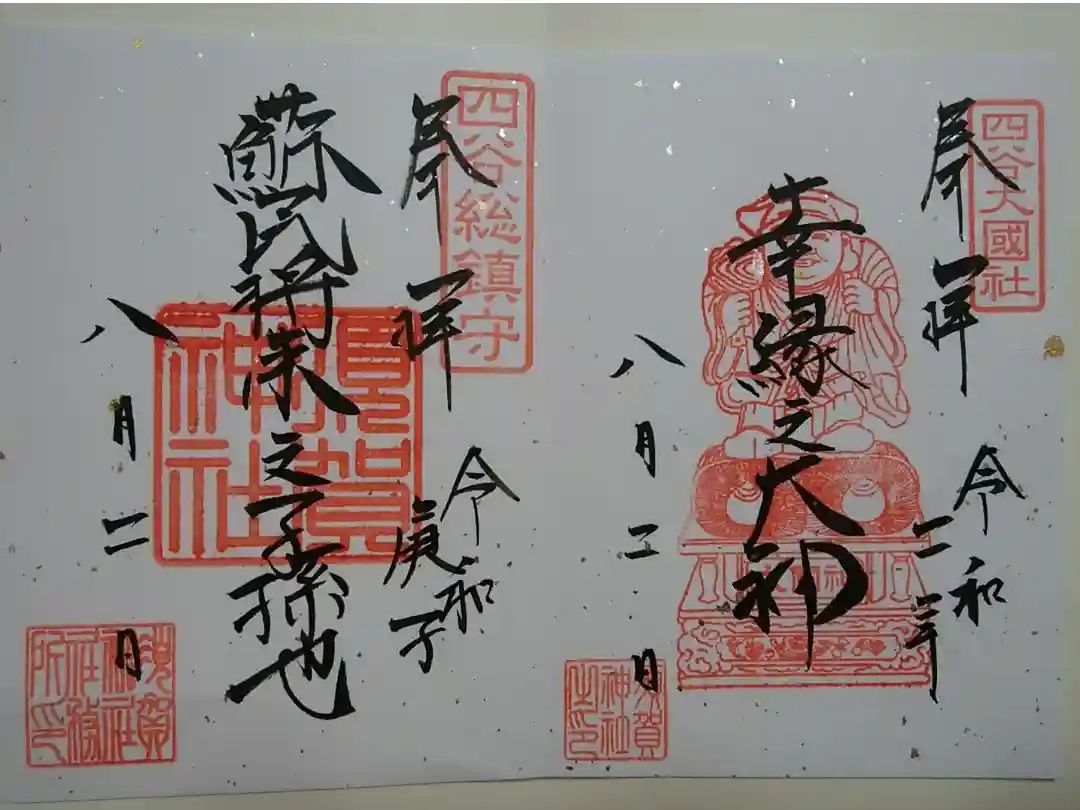 四谷大國社
奉拝
令和二年
幸縁之大神
八月二日
須賀神社之印
四谷総鎮守
奉拝
令和庚子
蘇民将来之子孫也
須賀神社
八月二日
須賀神社社務所印